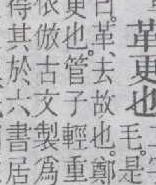 革更也
曰。革、去故也。毛是
更也。管子輕重鄭
依倣古文製爲
得其於六書居